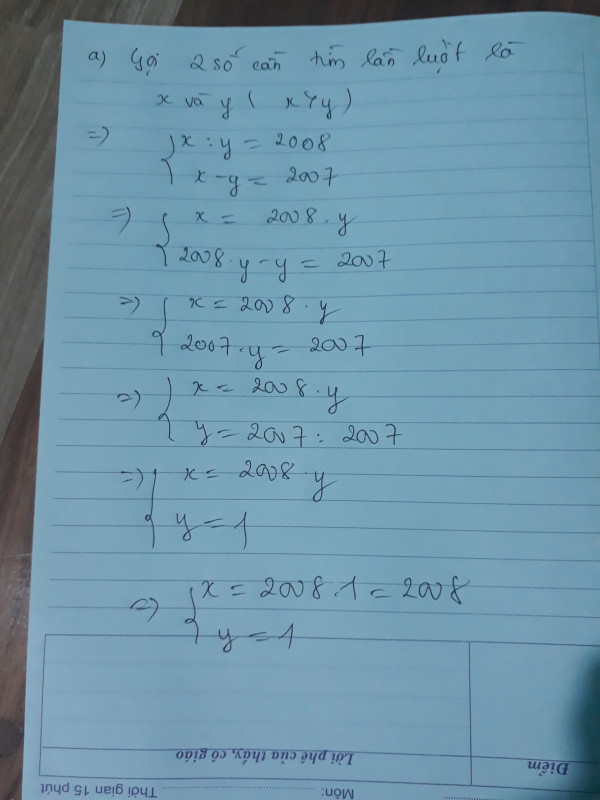 a) Gọi 2 số cần tìm lần lượt là
x và y ( x > y )
=> { x : y = 2008
x - y = 2007
=> { x = 2008 . y
2008 . y - y = 2007
=> { x = 2008 . y
2007 . y = 2007
=> { x = 2008 . y
y = 2007 : 2007
=> { x = 2008 . y
y = 1
=> { x = 2008 . 1 = 2008
y = 1
Điểm
Lời phê của thầy, cô giáo
Môn:
Thời gian 15 phút